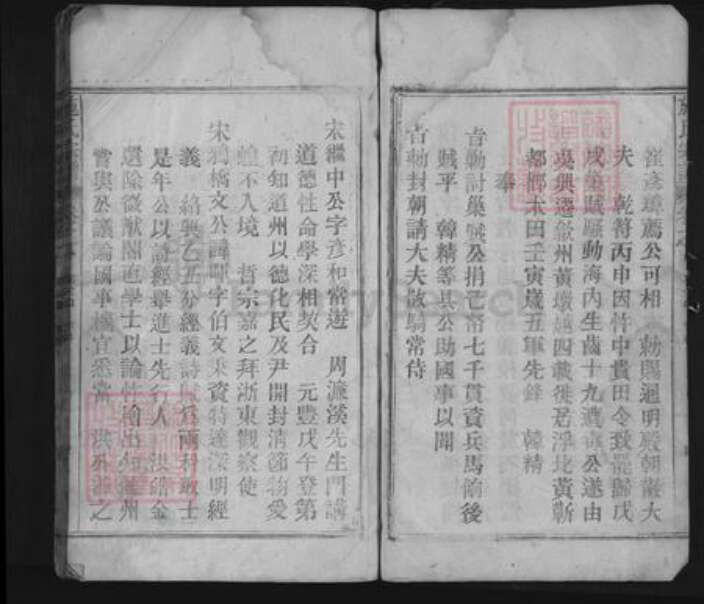 崔彥璋薦公可相　勑賜迴明殿朝散大
夫　乾符丙申因忤中貴田令孜罷歸戊
戌巢賊騷動海內生齒十九遭　公遂由
吳興遷歙州黃墩越四載徙居浮北黃靳
都鄉木田壬寅歲五軍先鋒　韓精
奉
旨勦討巢賊公捐己帑七千貫資兵馬餉後
賊平　韓精等具公助國事以聞
旨勑封朝請大夫散騎常侍
宋繼中公字彥和常遊　周濂溪先生門講
道德性命學深相契合　元豐戊午登第
初知道州以德化民及尹開封清節物愛
蝗不入境　哲宗嘉之拜浙東觀察使
宋鴉橋文公諱　字伯文秉資特達深明經
義　紹興乙丑分經義詩賦為兩科取士
是年公以詩經舉進士先行人　洪皓金
還除徽猷閣直學士以論忤檜出知　州
嘗與公議論國事機宜悉當　洪　之